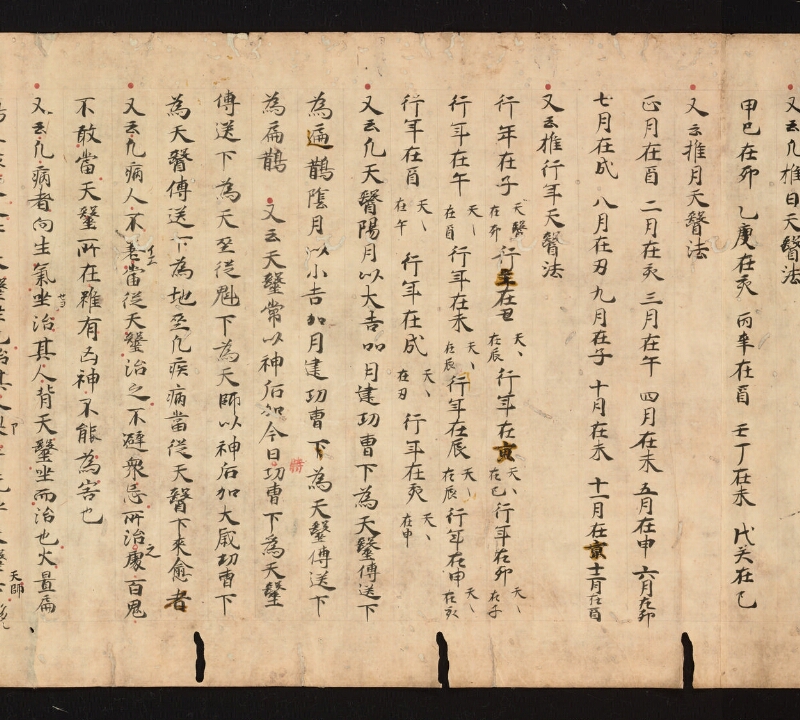 又云凡推日天醫法
甲己在卯 乙庚在亥 丙辛在酉 壬丁在未 戊癸在巳
又云推月天醫法
正月在酉 二月在亥 三月在午 四月在未 五月在申 六月在卯
七月在戌 八月在丑 九月在子 十月在未 十一月在寅 十二月在酉
又云推行年天醫法
行年在子 天醫在卯 行年在丑 天、在辰 行年在寅 天、在巳 行年在卯 天、在子
行年在午 天、在酉 行年在未 天、在辰 行年在辰 天、在辰 行年在申 天、在亥
行年在酉 天、在午 行年在戌 天、在丑 行年在亥 天、在申
又云凡天醫陽月以大吉加月建功曹下為天毉傳送下
為遍鵲陰月以小吉加月建功曹下為天毉傳送下
為扁鵲 又云天毉常以神后加今日功曹下為天毉
傳送下為天巫從魁下為天師以神后加大歲功曹下
為天醫傳送下為地巫凡疾病當從天醫下來愈者
又云凡病人不差當從天毉治之不避衆忌所治之處百鬼
不敢當天毉所在雖有凶神不能為害也
又云凡病者向生氣坐治其人背天毉坐而治也火量扁